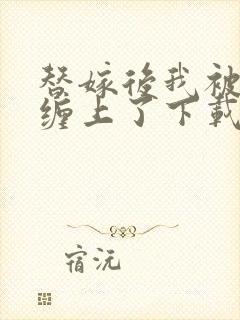 替嫁後我被
缠上了下載
宿沅